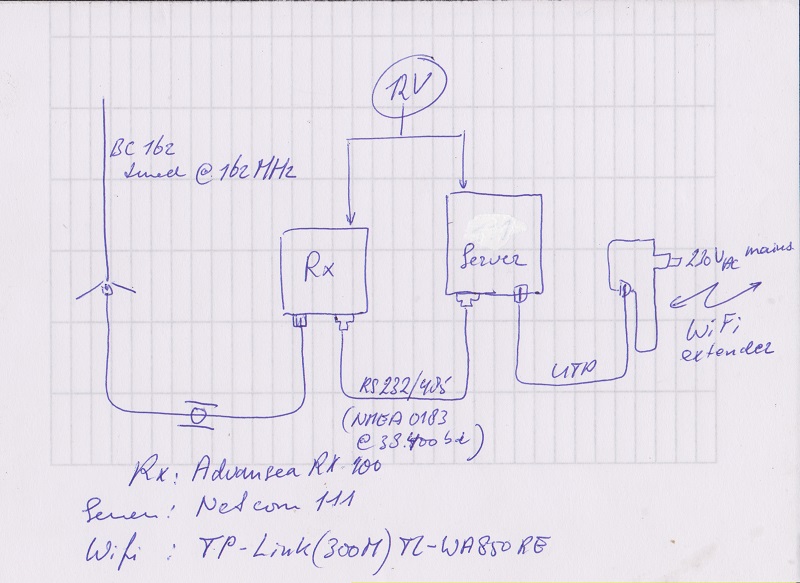 12V
BC 162
tuned @ 162 MHz
Rx
Server
220VAC mains
WiFi
extender
UTP
RS 232/485
(NMEA 0183
@ 38.400 bd)
Rx: Advansea RX 100
Server: NetCom 111
Wifi : TP-Link (300M) TL-WA850RE